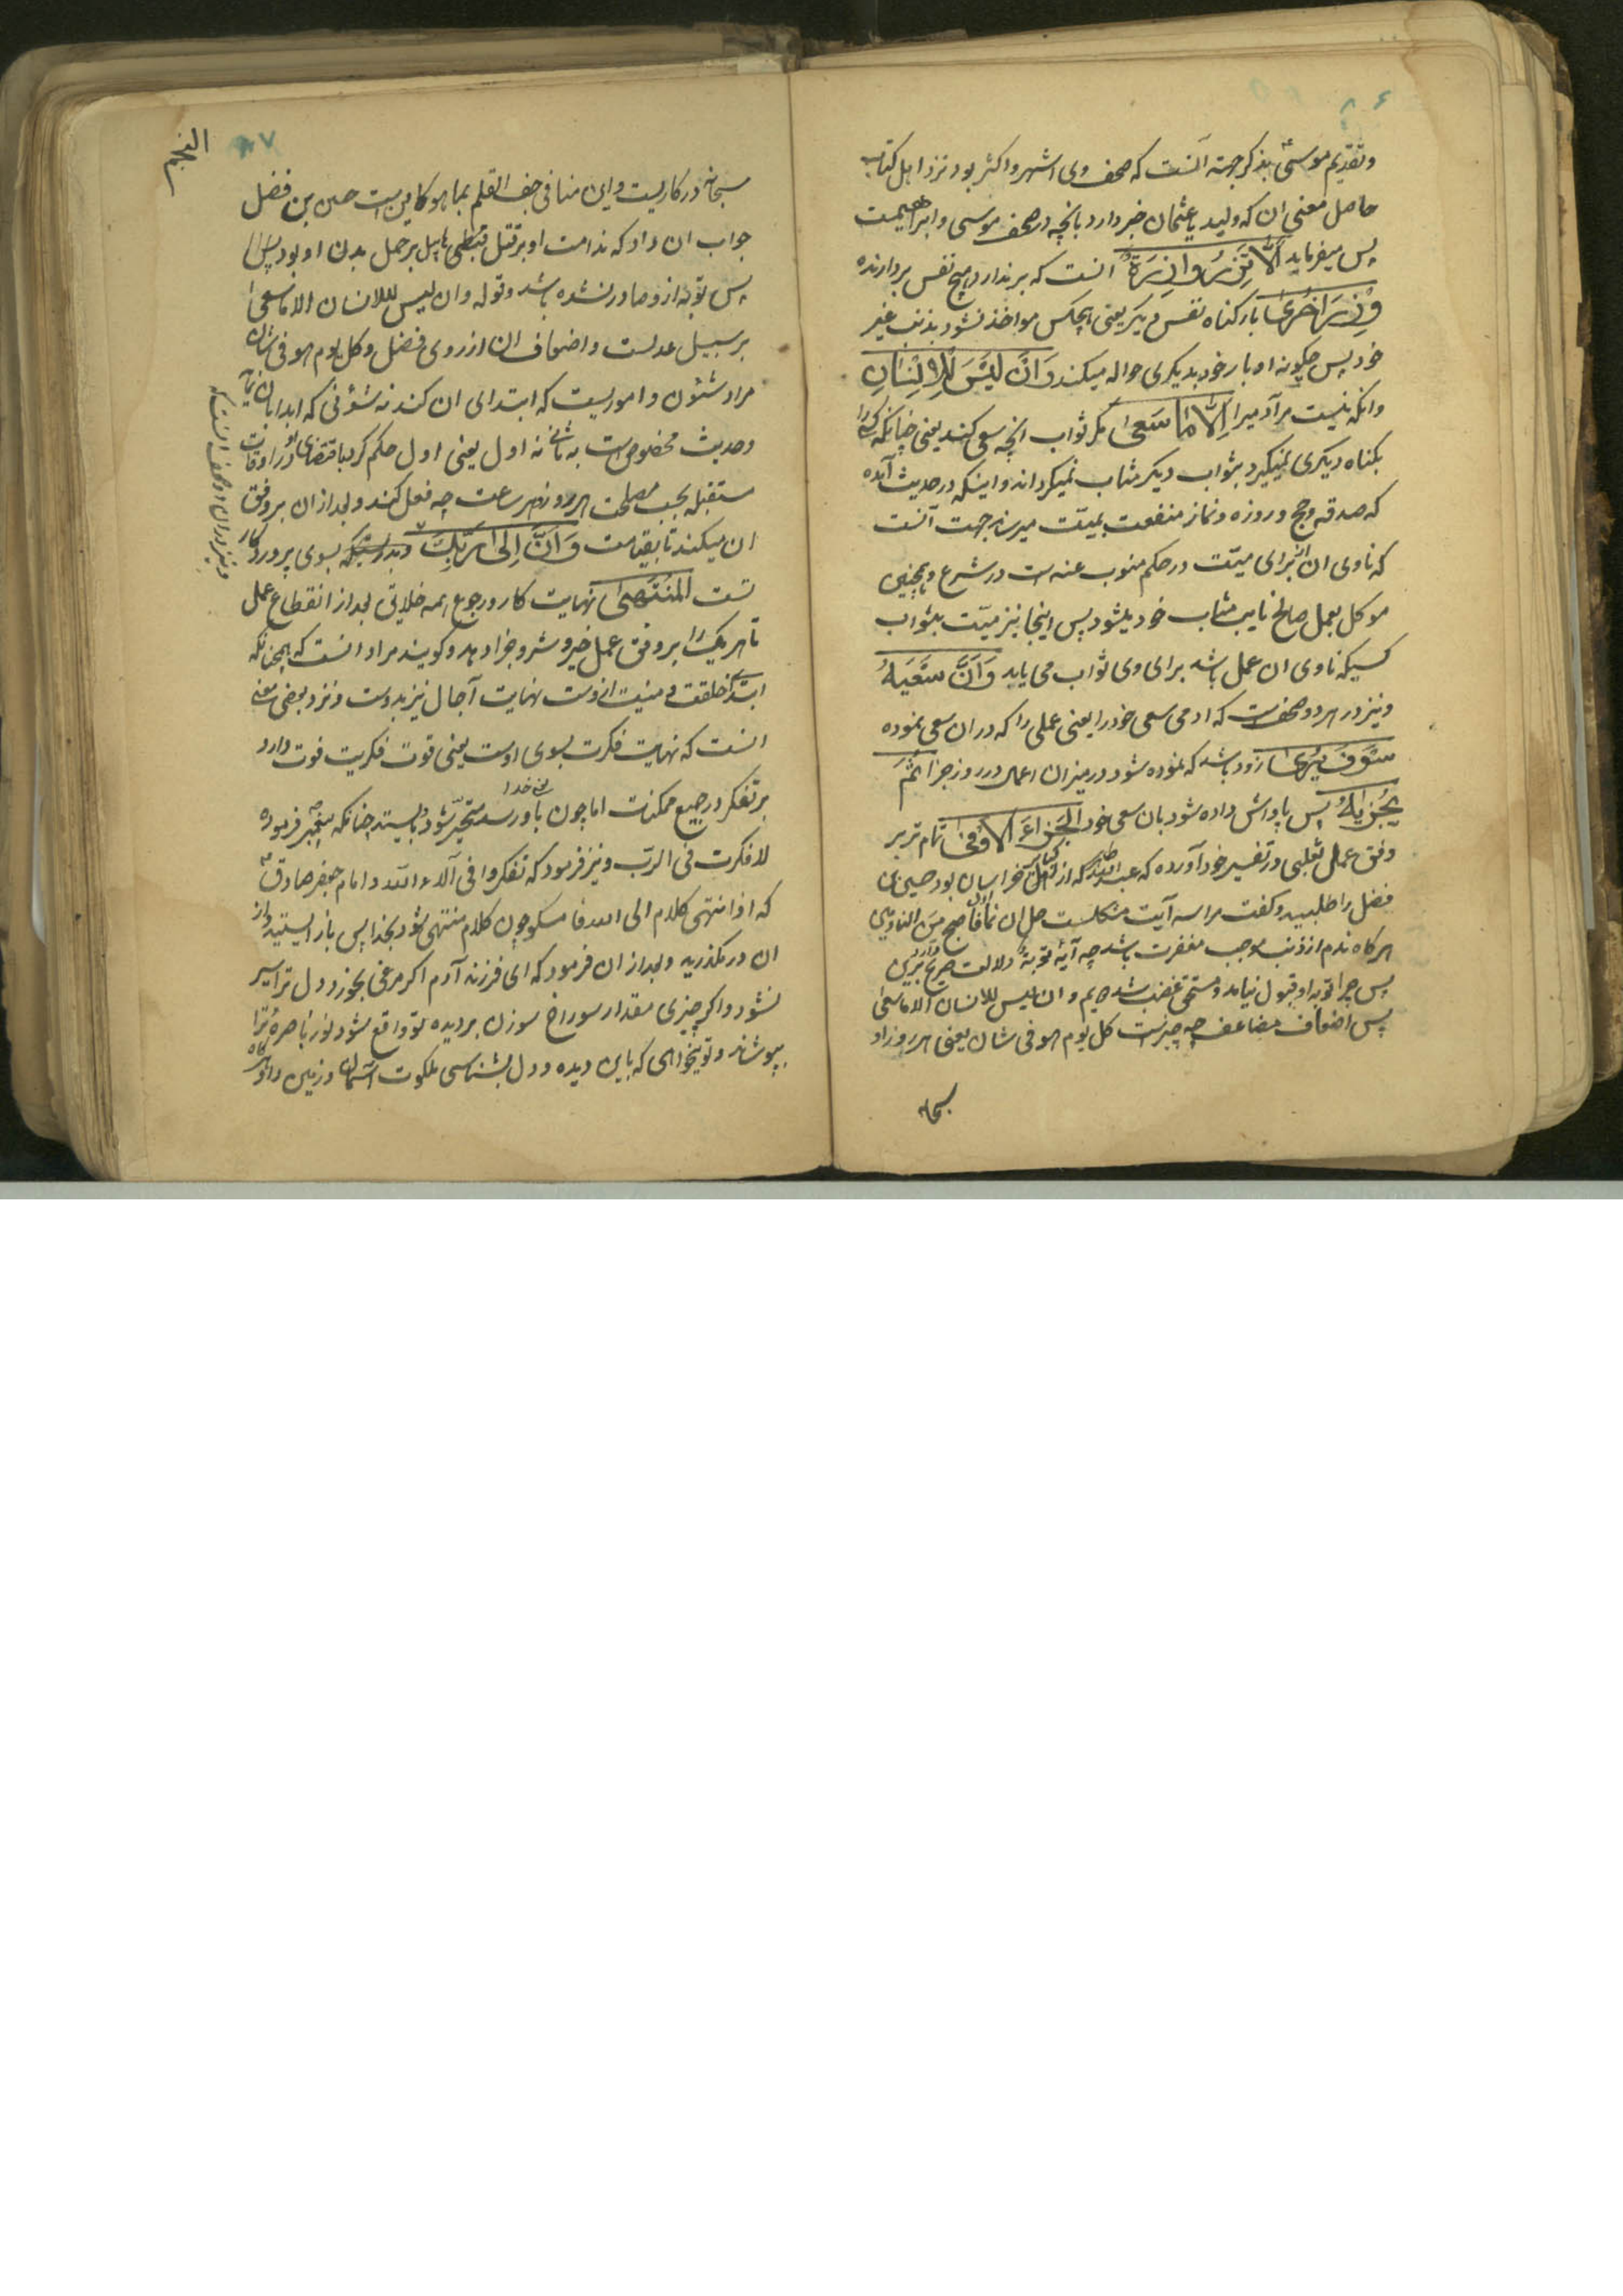 ۸۶
و تقدیم موسی بذکر جهة آنست که صحف وی اشهر و اکثر بود نزد اهل کتاب
حاصل معنی ان که ولید یا عثمان خبر دارد بانچه در صحف موسی و ابراهیمست
پس میفرماید اَلَّا تَزِرُ وَازِرَةٌ انست که برندارد هیچ نفس بردارنده
وِزْرَ اُخْرٰی بار کناه نفس دیکر یعنی هیچکس مواخذ نشود بذنب غیر
خود پس چکونه او بار خود بدیکری حواله میکند وَاَنْ لَیْسَ لِلْاِنْسَانِ
وانکه نیست مر آدمیرا اِلَّا مَا سَعٰی مکر ثواب انچه سعی کند یعنی چنانکه کسی را
بکناه دیکری نمیکیرد بثواب دیکر مثاب نمیکرداند و اینکه در حدیث آمده
که صدقه و حج و روزه و نماز منفعت بمیّت میرساند جهت آنست
که ناوی ان از برای میّت در حکم منوب عنه است در شرع و همچنین
موکل بعمل صالح نایب مثاب خود میشود پس اینجا نیز میّت بثواب
کسیکه ناوی ان عمل باشد برای وی ثواب می یابد وَاَنَّ سَعْیَهُ
و نیز در هر دو صحفست که ادمی سعی خود را یعنی عملی را که در ان سعی نموده
سَوْفَ یُرٰی زود باشد که نموده شود در میزان اعمال در روز جزا ثُمَّ
یُجْزٰیهُ پس پاداش داده شود بان سعی خود الْجَزَاءَ الْاَوْفٰی تمام تر بر
وفق عمل ثعلبی در تفسیر خود آورده که عبدالله طاهر که از اهل خراسان بود حسین بن
فضل را طلبید و کفت مرا سه آیت مشکلست حل ان نما اول فاصبح من النادمین
هرکاه ندم از ذنب موجب مغفرت باشد چه آیهٔ توبة دلالت صریح دارد برین
پس چرا توبه او قبول نیامد و مستحق غضب شد دویم و ان لیس للانسان الا ما سعی
پس اضعاف مضاعف چه چیزست کل یوم هو فی شان یعنی هر روز او
سبحانه
النجم
۸۷
سبحانه در کاریست و این منافی جف القلم بما هو کاین است حسین بن فضل
جواب ان داد که ندامت او بر قتل هابیل بر حمل بدن او بود
پس توبه ازو صادر نشده باشد و قوله و ان لیس للانسان الا ما سعی
بر سبیل عدلست و اضعاف ان از روی فضل و کل یوم هو فی شان
مراد شئون و اموریست که ابتدای ان کند نه شؤنی که ابدا بان نماید
و حدیث مخصوص است به ثانی نه اول یعنی اول حکم کرد باقتضای امور در اوقات
مستقبله بحسب مصلحت هر روز و هر ساعت چه فعل کند و بعد از ان بر وفق
ان میکند تا بقیامت وَاَنَّ اِلٰی رَبِّكَ و بدرستیکه بسوی پروردکار
تست الْمُنْتَهٰی نهایت کار و رجوع همه خلایق بعد از انقطاع عمل
تا هر یک را بر وفق عمل خیر و شر و جزا دهد و کویند مراد انست که همچنانکه
ابتدای خلقت و منیت ازوست نهایت آجال نیز بدوست و نزد بعضی معنی
انست که نهایت فکرت بسوی اوست یعنی قوت فکریت قوت دارد
بر تفکر در جمیع ممکنات اما چون باو رسد یعنی خدا متحیّر شود و بایستد چنانکه پیغمبر فرموده
لا فکرت فی الرب و نیز فرمود که تفکروا فی آلاء الله و امام جعفر صادق
که اذا انتهی کلام الی الله فامسکو چون کلام منتهی شود بخدا پس باز ایستید و از
ان در مکذرید و بعد از ان فرمود که ای فرزند آدم اکر مرغی بخورد دل ترا سیر
نشود و اکر چیزی مقدار سوراخ سوزن بر دیده تو واقع شود نور باصرهٔ ترا
بپوشاند و تو میخواهی که باین دیده و دل بشناسی ملکوت آسمان و زمین را و
و نیز در ان دو صحف انست که